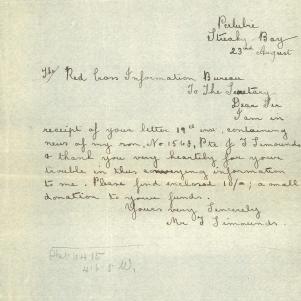 Perlubie
Streaky Bay
23rd August
The Red Cross Information Bureau
To The Secretary
Dear Sir
I am in
receipt of your letter 19th inst, containing
news of my son, No 1563, Pte J J Simounds
& thank you very heartily for your
trouble in thus conveying information
to me. Please find enclosed 10/-; a small
donation to your funds.
Yours very Sincerely
Mr J Simounds.